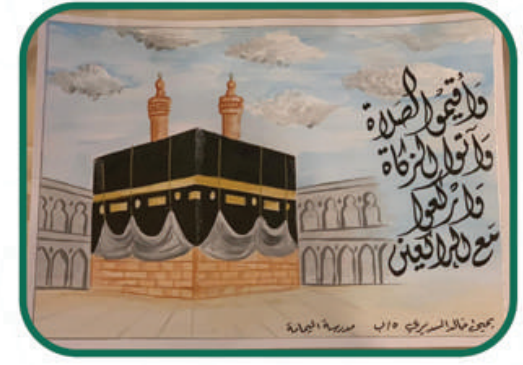 وَأَقِيمُوا الصَلَاة
وَآتوا الزكَاة
وَارْكَعُوا
مَع الراكعين
يحيى خالد السديري ٥/ب مدرسة اليمامة